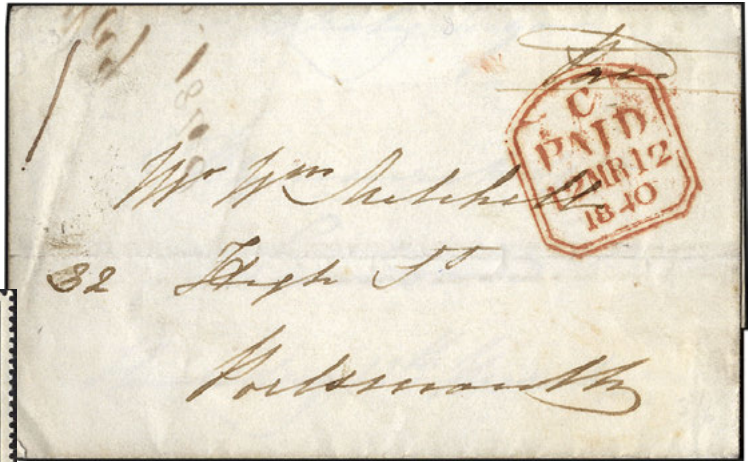 Paid
C
PAID
12MR12
1840
Mr Wm Mitchell
32 High St
Portsmouth